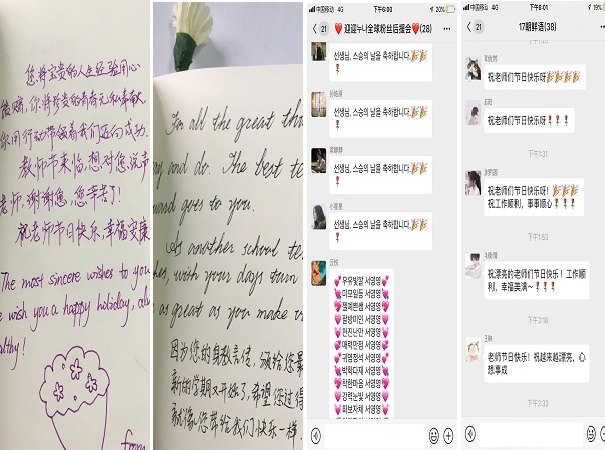 您将宝贵的人生经验用心
你将珍贵的青春无私奉献
你用行动带领着我们迈向成功.
教师节来临,想对您说声
老师,谢谢您,您辛苦了!
祝老师节日快乐,幸福安康
The most sincere wishes to you
we wish you a happy holiday,
healthy!
from
For all the great
and do. The best
and goes to you.
As another school
wish your days turn
as great as you make
因为您的身教言传,
新的学期又开始了,希望您过得
就像您带给我们快乐一样.
中国移动 下午6:00 20%
21 ❤️迎迎누나全球粉丝后援会❤️(28)
선생님, 스승의 날을 축하합니다.🎉🎉
🌹
선생님, 스승의 날을 축하합니다.🎉🎉
🌹
선생님, 스승의 날을 축하합니다.🎉🎉
🌹
小星星
선생님, 스승의 날을 축하합니다.🎉🎉
🌹
💕우유빛깔 서영영💕
💕미모일등 서영영💕
💕팔방미인 서영영💕
💕매력만점 서영영💕
💕귀염정석 서영영💕
💕박학다재 서영영💕
💕착한마음 서영영💕
💕강력눈빛 서영영💕
💕화보자체 서영영💕
中国移动 下午6:01 19%
21 17朝鲜语(38)
祝老师们节日快乐呀🎉🎉🎉🎉
祝老师们节日快乐呀🌹🌹🌹
下午1:31
祝老师们节日快乐呀!🎉🎉🎉
祝工作顺利,事事顺心🌹🌹🌹
下午1:53
祝漂亮的老师们节日快乐!工作顺
利,幸福美满~🌹🌹🌹
下午2:18
老师节日快乐!祝越来越漂亮,心
想事成
下午2:33